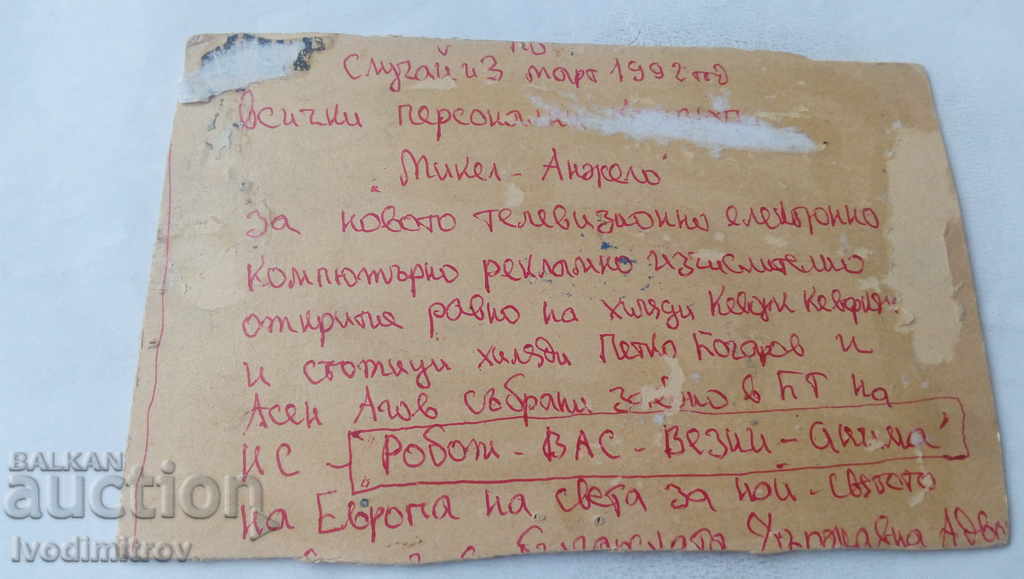 по
Случай из март 1992 год
Всички персонални
"Микел - Анжело"
За новото телевизионно електронно
компютърно рекламно изчислително
откритие равно на хиляди Кеворк Кеворкян
и стотици хиляди Петко Бочаров и
Асен Агов събрани заедно в БТ на
НС - "Робот - ВАС - Везни - Сигма"
на Европа на света за най - святото
BALKAN
auction
Ivodimitrov